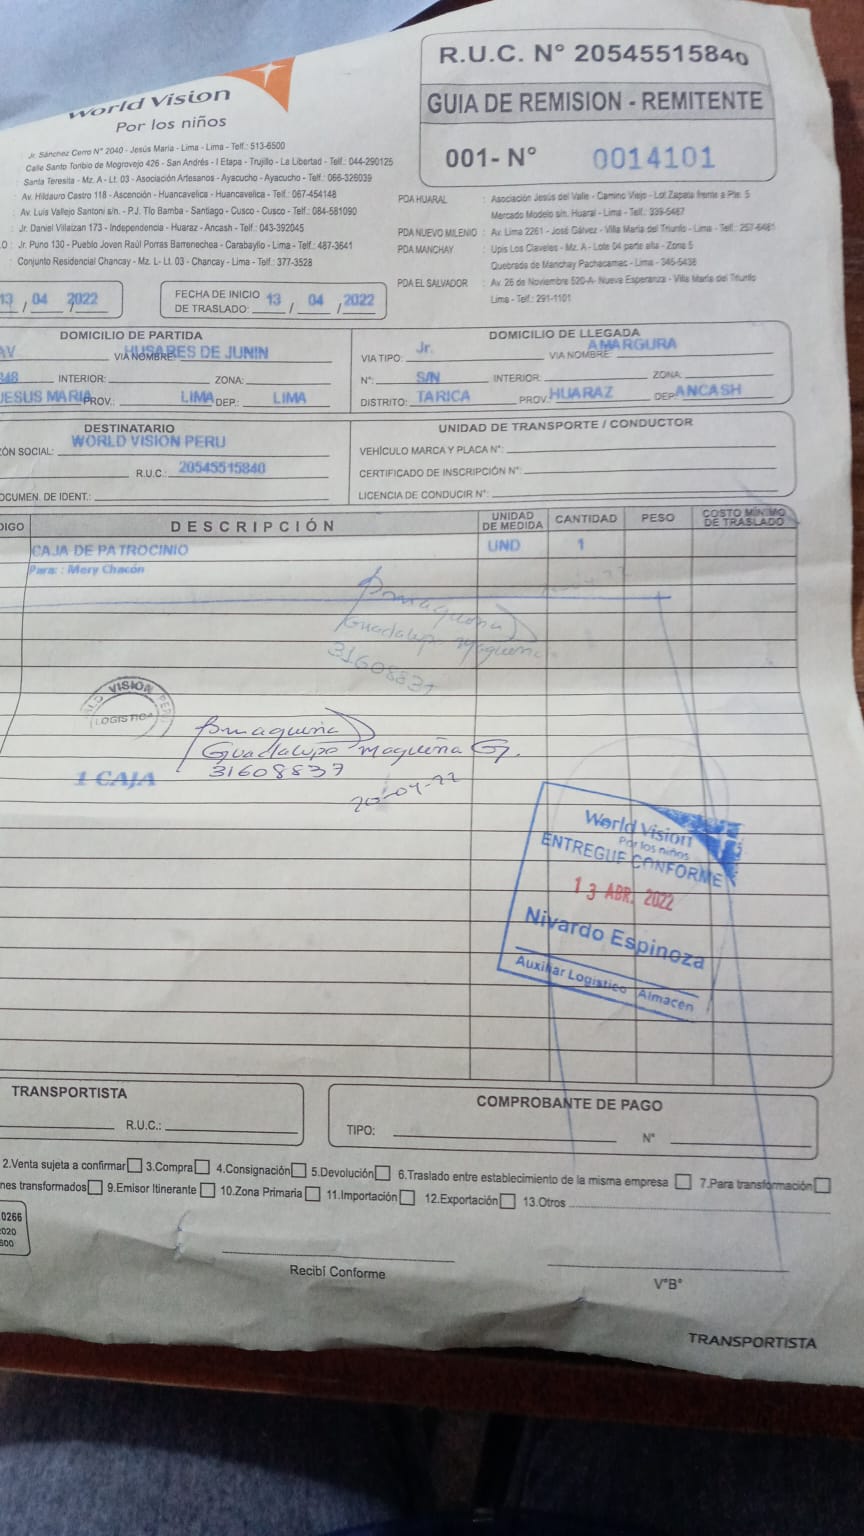 World Vision
Por los niños
R.U.C. N° 20545515840
GUIA DE REMISION - REMITENTE
001- N° 0014101
Jr. Sánchez Cerro N° 2040 - Jesús María - Lima - Lima - Telf.: 513-6500
Calle Santo Toribio de Mogrovejo 426 - San Andrés - I Etapa - Trujillo - La Libertad - Telf.: 044-290125
Santa Teresita - Mz. A - Lt. 03 - Asociación Artesanos - Ayacucho - Ayacucho - Telf.: 066-326039
Av. Hildauro Castro 118 - Ascención - Huancavelica - Huancavelica - Telf.: 067-454148
Av. Luis Vallejo Santoni s/n. - P.J. Tío Bamba - Santiago - Cusco - Cusco - Telf.: 084-581090
Jr. Daniel Villaizan 173 - Independencia - Huaraz - Ancash - Telf.: 043-392045
O : Jr. Puno 130 - Pueblo Joven Raúl Porras Barrenechea - Carabayllo - Lima - Telf.: 487-3641
Conjunto Residencial Chancay - Mz. L- Lt. 03 - Chancay - Lima - Telf.: 377-3528
PDA HUARAL : Asociación Jesús del Valle - Camino Viejo - Lot. Zapata frente a Pte. 5
Mercado Modelo s/n. Huaral - Lima - Telf.: 339-5467
PDA NUEVO MILENIO : Av. Lima 2261 - José Gálvez - Villa María del Triunfo - Lima - Telf.: 257-6481
PDA MANCHAY : Upis Los Claveles - Mz. A - Lote 04 parte alta - Zona 5
Quebrada de Manchay Pachacamac - Lima - 345-5438
PDA EL SALVADOR : Av. 26 de Noviembre 520-A- Nueva Esperanza - Villa María del Triunfo
Lima - Telf.: 291-1101
13 / 04 / 2022
FECHA DE INICIO DE TRASLADO: 13 / 04 / 2022
DOMICILIO DE PARTIDA
AV VIA NOMBRE: HUSARES DE JUNIN
INTERIOR: ZONA:
JESUS MARIA PROV.: LIMA DEP.: LIMA
DOMICILIO DE LLEGADA
VIA TIPO: Jr. VIA NOMBRE: AMARGURA
N°: S/N INTERIOR: ZONA:
DISTRITO: TARICA PROV. HUARAZ DEP. ANCASH
DESTINATARIO
ZÓN SOCIAL: WORLD VISION PERU
R.U.C.: 20545515840
OCUMEN. DE IDENT.:
UNIDAD DE TRANSPORTE / CONDUCTOR
VEHÍCULO MARCA Y PLACA N°:
CERTIFICADO DE INSCRIPCIÓN N°:
LICENCIA DE CONDUCIR N°:
DIGO DESCRIPCIÓN UNIDAD DE MEDIDA CANTIDAD PESO COSTO MÍNIMO DE TRASLADO
CAJA DE PATROCINIO UND 1
Para: : Mery Chacón
Bmaqueña
Guadalupo Maqueña
31608837
VISION
LOGISTICA
Bmaqueña
Guadalupo Maqueña G.
31608837
1 CAJA
20-04-22
World Vision
Por los niños
ENTREGUE CONFORME
13 ABR. 2022
Nivardo Espinoza
Auxiliar Logistico Almacen
TRANSPORTISTA
R.U.C.:
COMPROBANTE DE PAGO
TIPO: N°
2.Venta sujeta a confirmar 3.Compra 4.Consignación 5.Devolución 6.Traslado entre establecimiento de la misma empresa 7.Para transformación
nes transformados 9.Emisor Itinerante 10.Zona Primaria 11.Importación 12.Exportación 13.Otros
0266
2020
600
Recibí Conforme
V°B°
TRANSPORTISTA